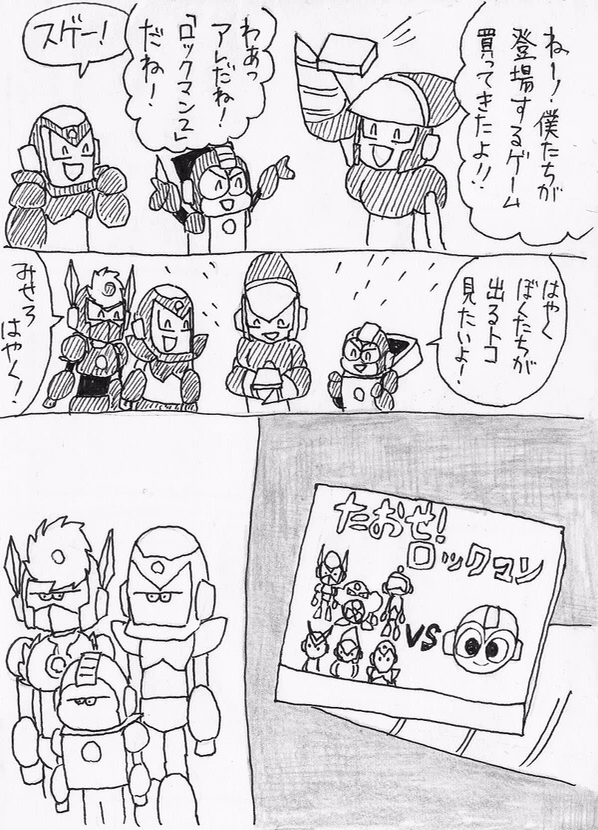 ねー!僕たちが
登場するゲーム
買ってきたよ!!
わあっ
アレだね!
「ロックマン2」
だね!
スゲー!
はやく
ぼくたちが
出るトコ
見たいよ!
みせろ
はやく!
たおせ!
ロックマン
VS